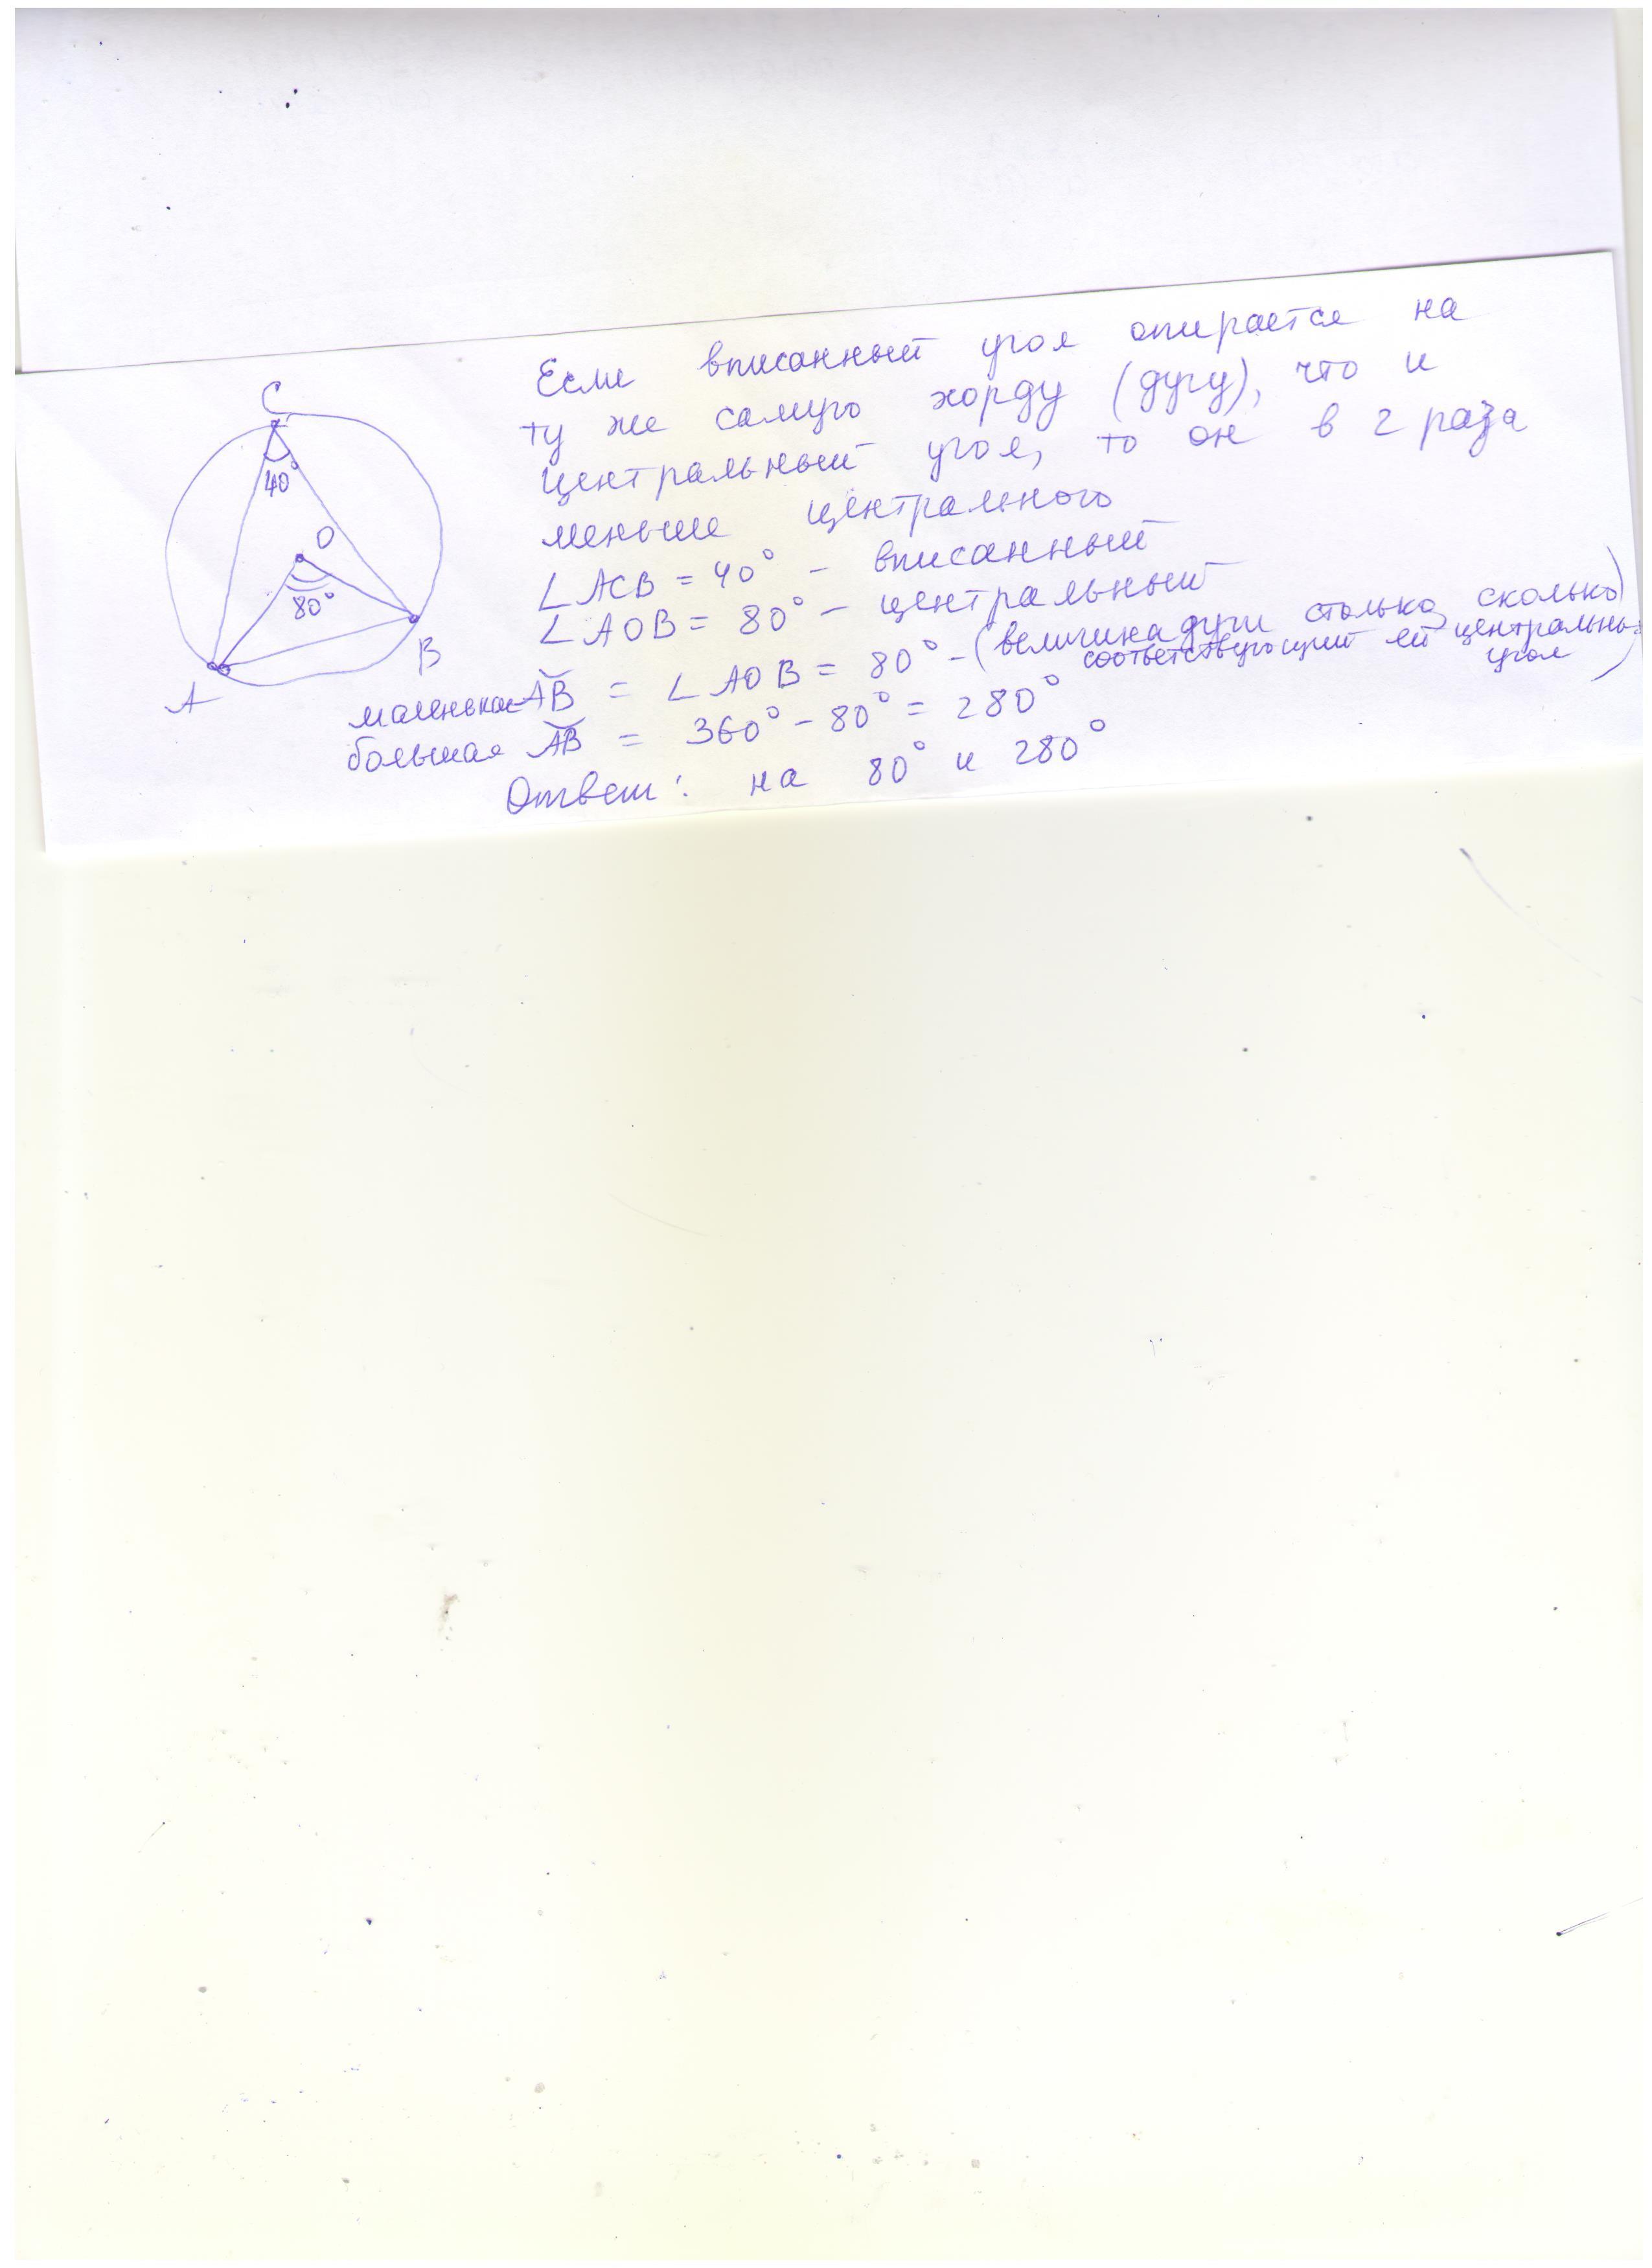 C
40°
O
80°
A
B
Если вписанный угол опирается на
ту же самую хорду (дугу), что и
центральный угол, то он в 2 раза
меньше центрального
∠ACB = 40° - вписанный
∠AOB = 80° - центральный
маленькая AB = ∠AOB = 80° - (величина дуги столько, сколько
соответствующий ей центральный
угол)
большая AB = 360° - 80° = 280°
Ответ: на 80° и 280°